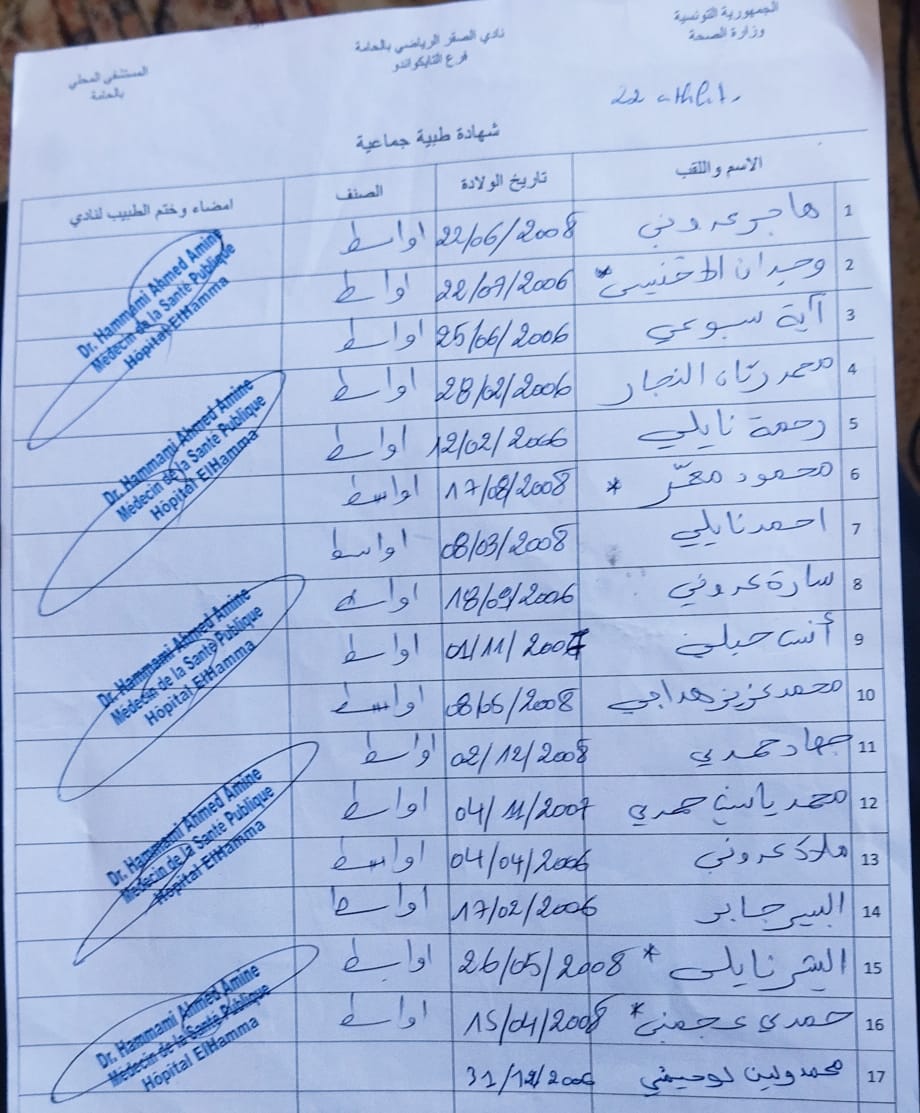 الجمهورية التونسية
وزارة الصحة
نادي الصقر الرياضي بالحامة
فرع التايكواندو
المستشفى المحلي
بالحامة
22 athlèt.
شهادة طبية جماعية
الاسم واللقب تاريخ الولادة الصنف امضاء وختم الطبيب لنادي
1 هاجر عروني 22/06/2008 اواسط
2 وجدان الاخنيسي * 22/07/2006 اواسط
3 آية سبوعي 25/06/2006 اواسط
4 محمد ريان النجار 28/02/2006 اواسط
5 رحمة نايلي 12/02/2006 اواسط
6 محمود معمّر * 17/08/2008 اواسط
7 احمد نايلي 08/03/2008 اواسط
8 سارة عروني 18/09/2006 اواسط
9 أنس 01/11/2007 اواسط
10 محمد عزيز هدايجي 08/05/2008 اواسط
11 جهاد حمدي 02/12/2008 اواسط
12 محمد ياسين حمدي 04/11/2007 اواسط
13 ملاك عروني 04/04/2006 اواسط
14 اليسر جابر 17/02/2006 اواسط
15 اليسر نايلي * 26/05/2008 اواسط
16 حمدي عجمني * 15/04/2008 اواسط
17 محمد 31/12/2006
Dr. Hammami Ahmed Amine
Médecin de la Santé Publique
Hôpital ElHamma
Dr. Hammami Ahmed Amine
Médecin de la Santé Publique
Hôpital ElHamma
Dr. Hammami Ahmed Amine
Médecin de la Santé Publique
Hôpital ElHamma
Dr. Hammami Ahmed Amine
Médecin de la Santé Publique
Hôpital ElHamma
Dr. Hammami Ahmed Amine
Médecin de la Santé Publique
Hôpital ElHamma